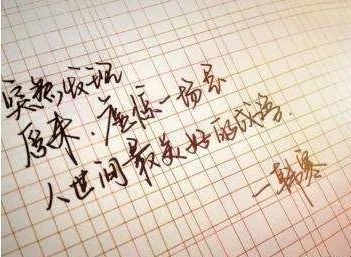 突然发现
原来，虚惊一场是
人世间最美好的成语.
—韩寒